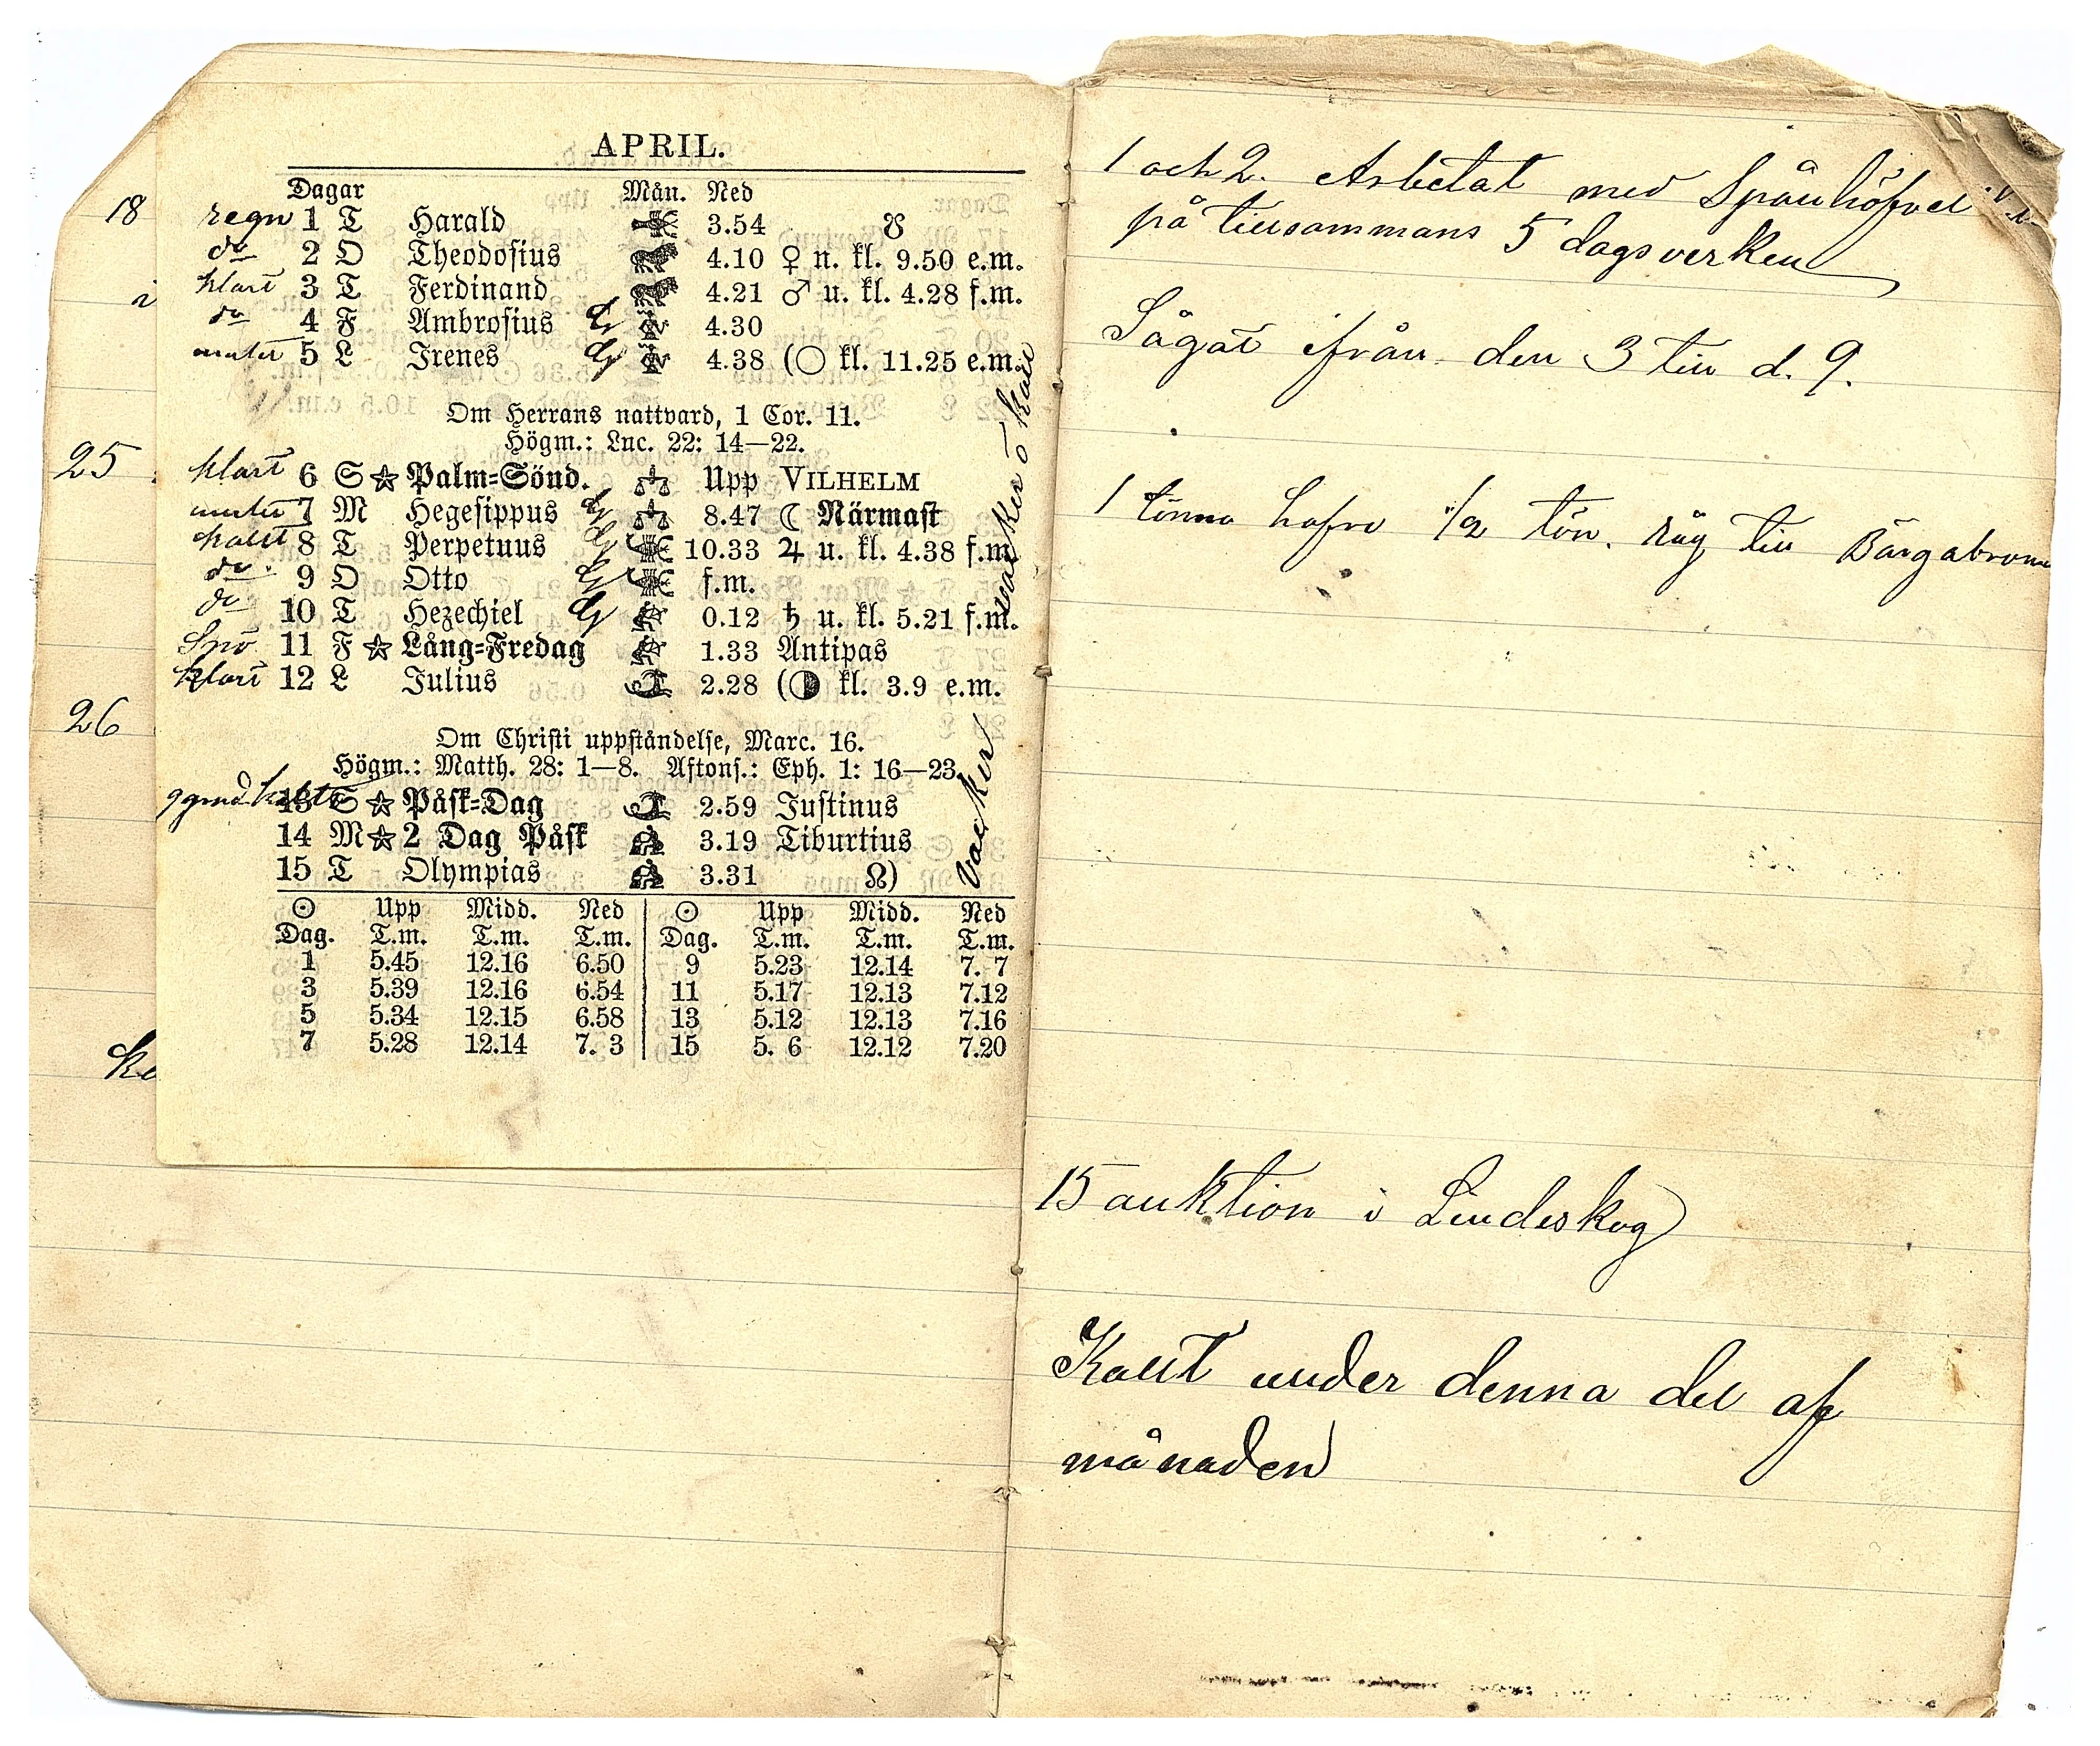 APRIL.
Dagar Mån. Ned
18 regn 1 T Harald 3.54 ☋
do 2 O Theodosius 4.10 ♀ n. kl. 9.50 e.m.
i klart 3 T Ferdinand 4.21 ♂ u. kl. 4.28 f.m.
do 4 F Ambrosius 4.30
mulet 5 L Irenes 4.38 (○ kl. 11.25 e.m.
Om Herrans nattvard, 1 Cor. 11.
Högm.: Luc. 22: 14—22.
25 klart 6 S ☆ Palm=Sönd. Upp VILHELM
mulet 7 M Hegesippus 8.47 ☾ Närmast
kallt 8 T Perpetuus 10.33 ♃ u. kl. 4.38 f.m.
do. 9 O Otto f.m.
do 10 T Hezechiel 0.12 ♄ u. kl. 5.21 f.m.
Snö 11 F ☆ Lång=Fredag 1.33 Antipas
klart 12 L Julius 2.28 (◑ kl. 3.9 e.m.
vacker o kall
26
Om Christi uppståndelse, Marc. 16.
Högm.: Matth. 28: 1—8. Aftons.: Eph. 1: 16—23.
13 S ☆ Påsk=Dag 2.59 Justinus
14 M ☆ 2 Dag Påsk 3.19 Tiburtius
15 T Olympias 3.31 ☊)
Vacker
☉ Upp Midd. Ned ☉ Upp Midd. Ned
Dag. T.m. T.m. T.m. Dag. T.m. T.m. T.m.
1 5.45 12.16 6.50 9 5.23 12.14 7. 7
3 5.39 12.16 6.54 11 5.17 12.13 7.12
5 5.34 12.15 6.58 13 5.12 12.13 7.16
7 5.28 12.14 7. 3 15 5. 6 12.12 7.20
1 och 2. Arbetat med Spånhöfvel
på tillsammans 5 dagsverken
Sågat ifrån den 3 till d. 9.
1 tönna hafre 1/2 tön. råg till
15 auktion i Lindeskog
Kallt under denna del af
månaden